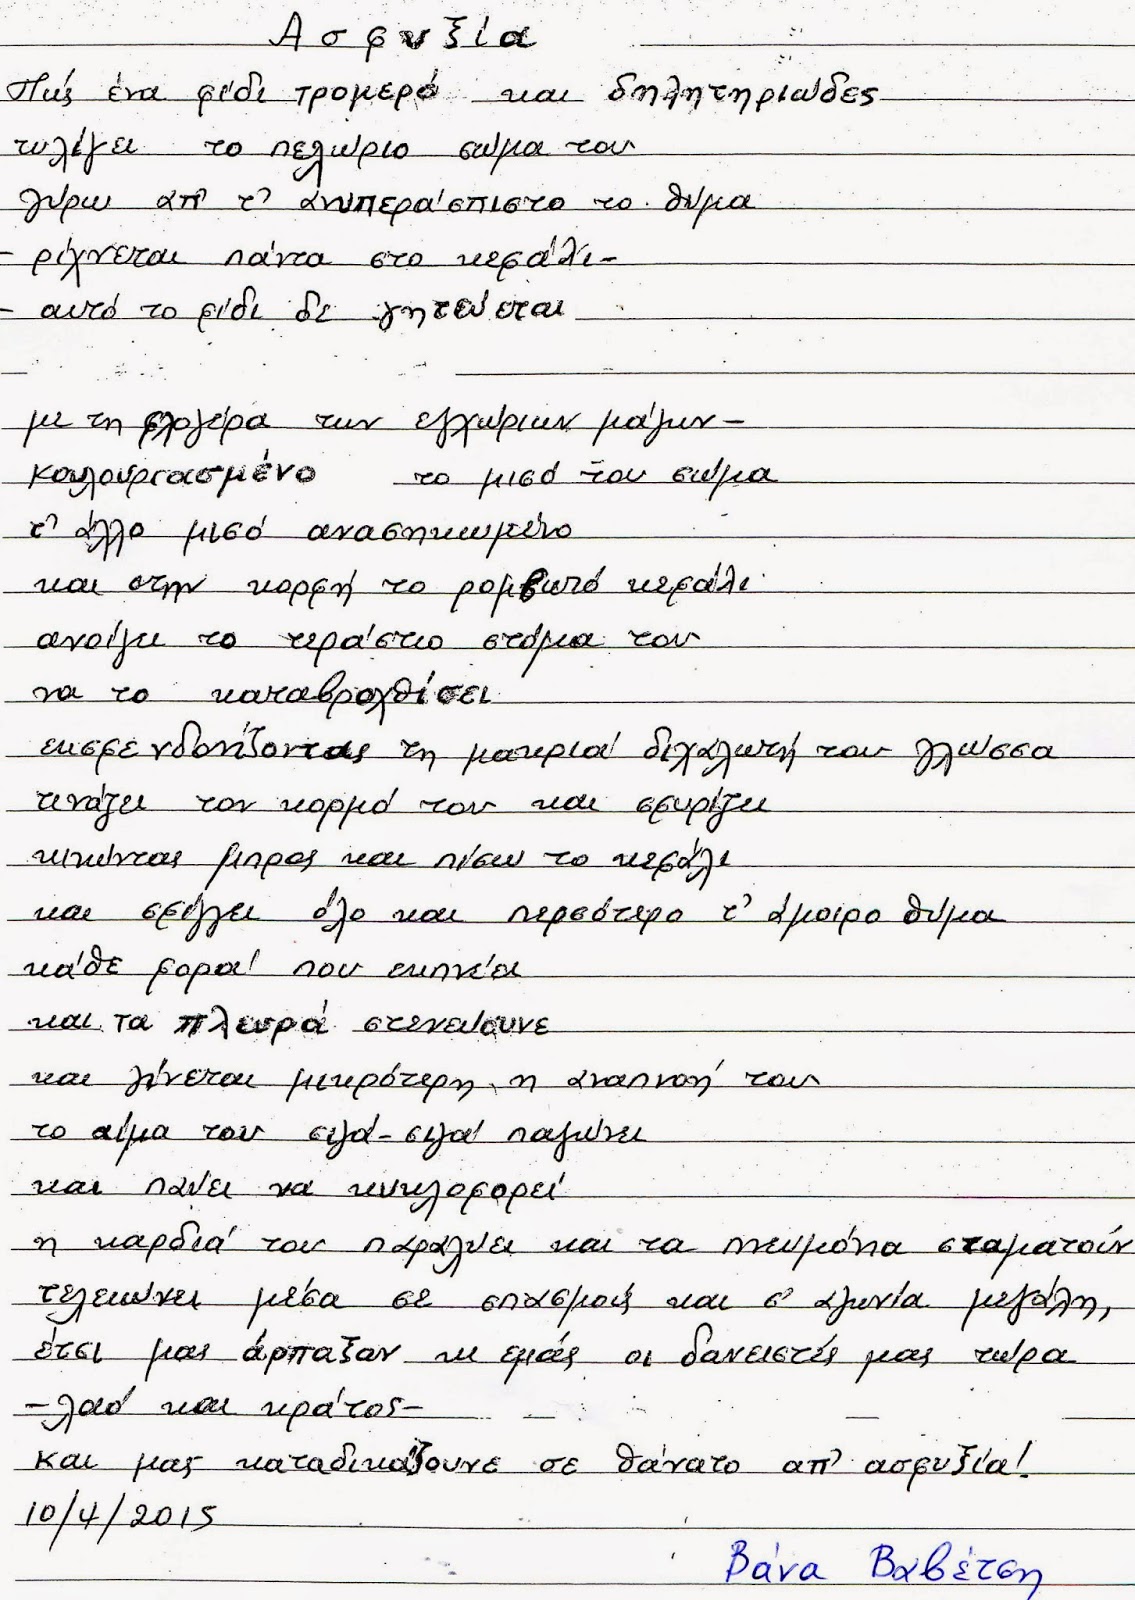 Ασφυξία
Πώς ένα φίδι τρομερό και δηλητηριώδες
τυλίγει το πελώριο σώμα του
γύρω απ' τ' ανυπεράσπιστο το θύμα
- ρίχνεται πάντα στο κεφάλι -
- αυτό το φίδι δε γητεύεται
με τη φλογέρα των εγχώριων μάγων -
κουλουριασμένο το μισό του σώμα
τ' άλλο μισό ανασηκωμένο
και στην κορφή το ρομβωτό κεφάλι
ανοίγει το τεράστιο στόμα του
να το καταβροχθίσει
εκσφενδονίζοντας τη μακριά διχαλωτή του γλώσσα
τινάζει τον κορμό του και σφυρίζει
κικώντας μπρος και πίσω το κεφάλι
και σφίγγει όλο και περσότερο τ' άμοιρο θύμα
κάθε φορά που εκπνέει
και τα πλευρά στενεύουνε
και γίνεται μικρότερη η αναπνοή του
το αίμα του σιγά - σιγά παγώνει
και παύει να κυκλοφορεί
η καρδιά του παραλύει και τα πνευμόνια σταματούν
τελειώνει μέσα σε σπασμούς και σ' αγωνία μεγάλη,
έτσι μας άρπαξαν κι εμάς οι δανειστές μας τώρα
- λαό και κράτος -
και μας καταδικάζουνε σε θάνατο απ' ασφυξία!
10/4/2015
Βάνα Βαβέτση